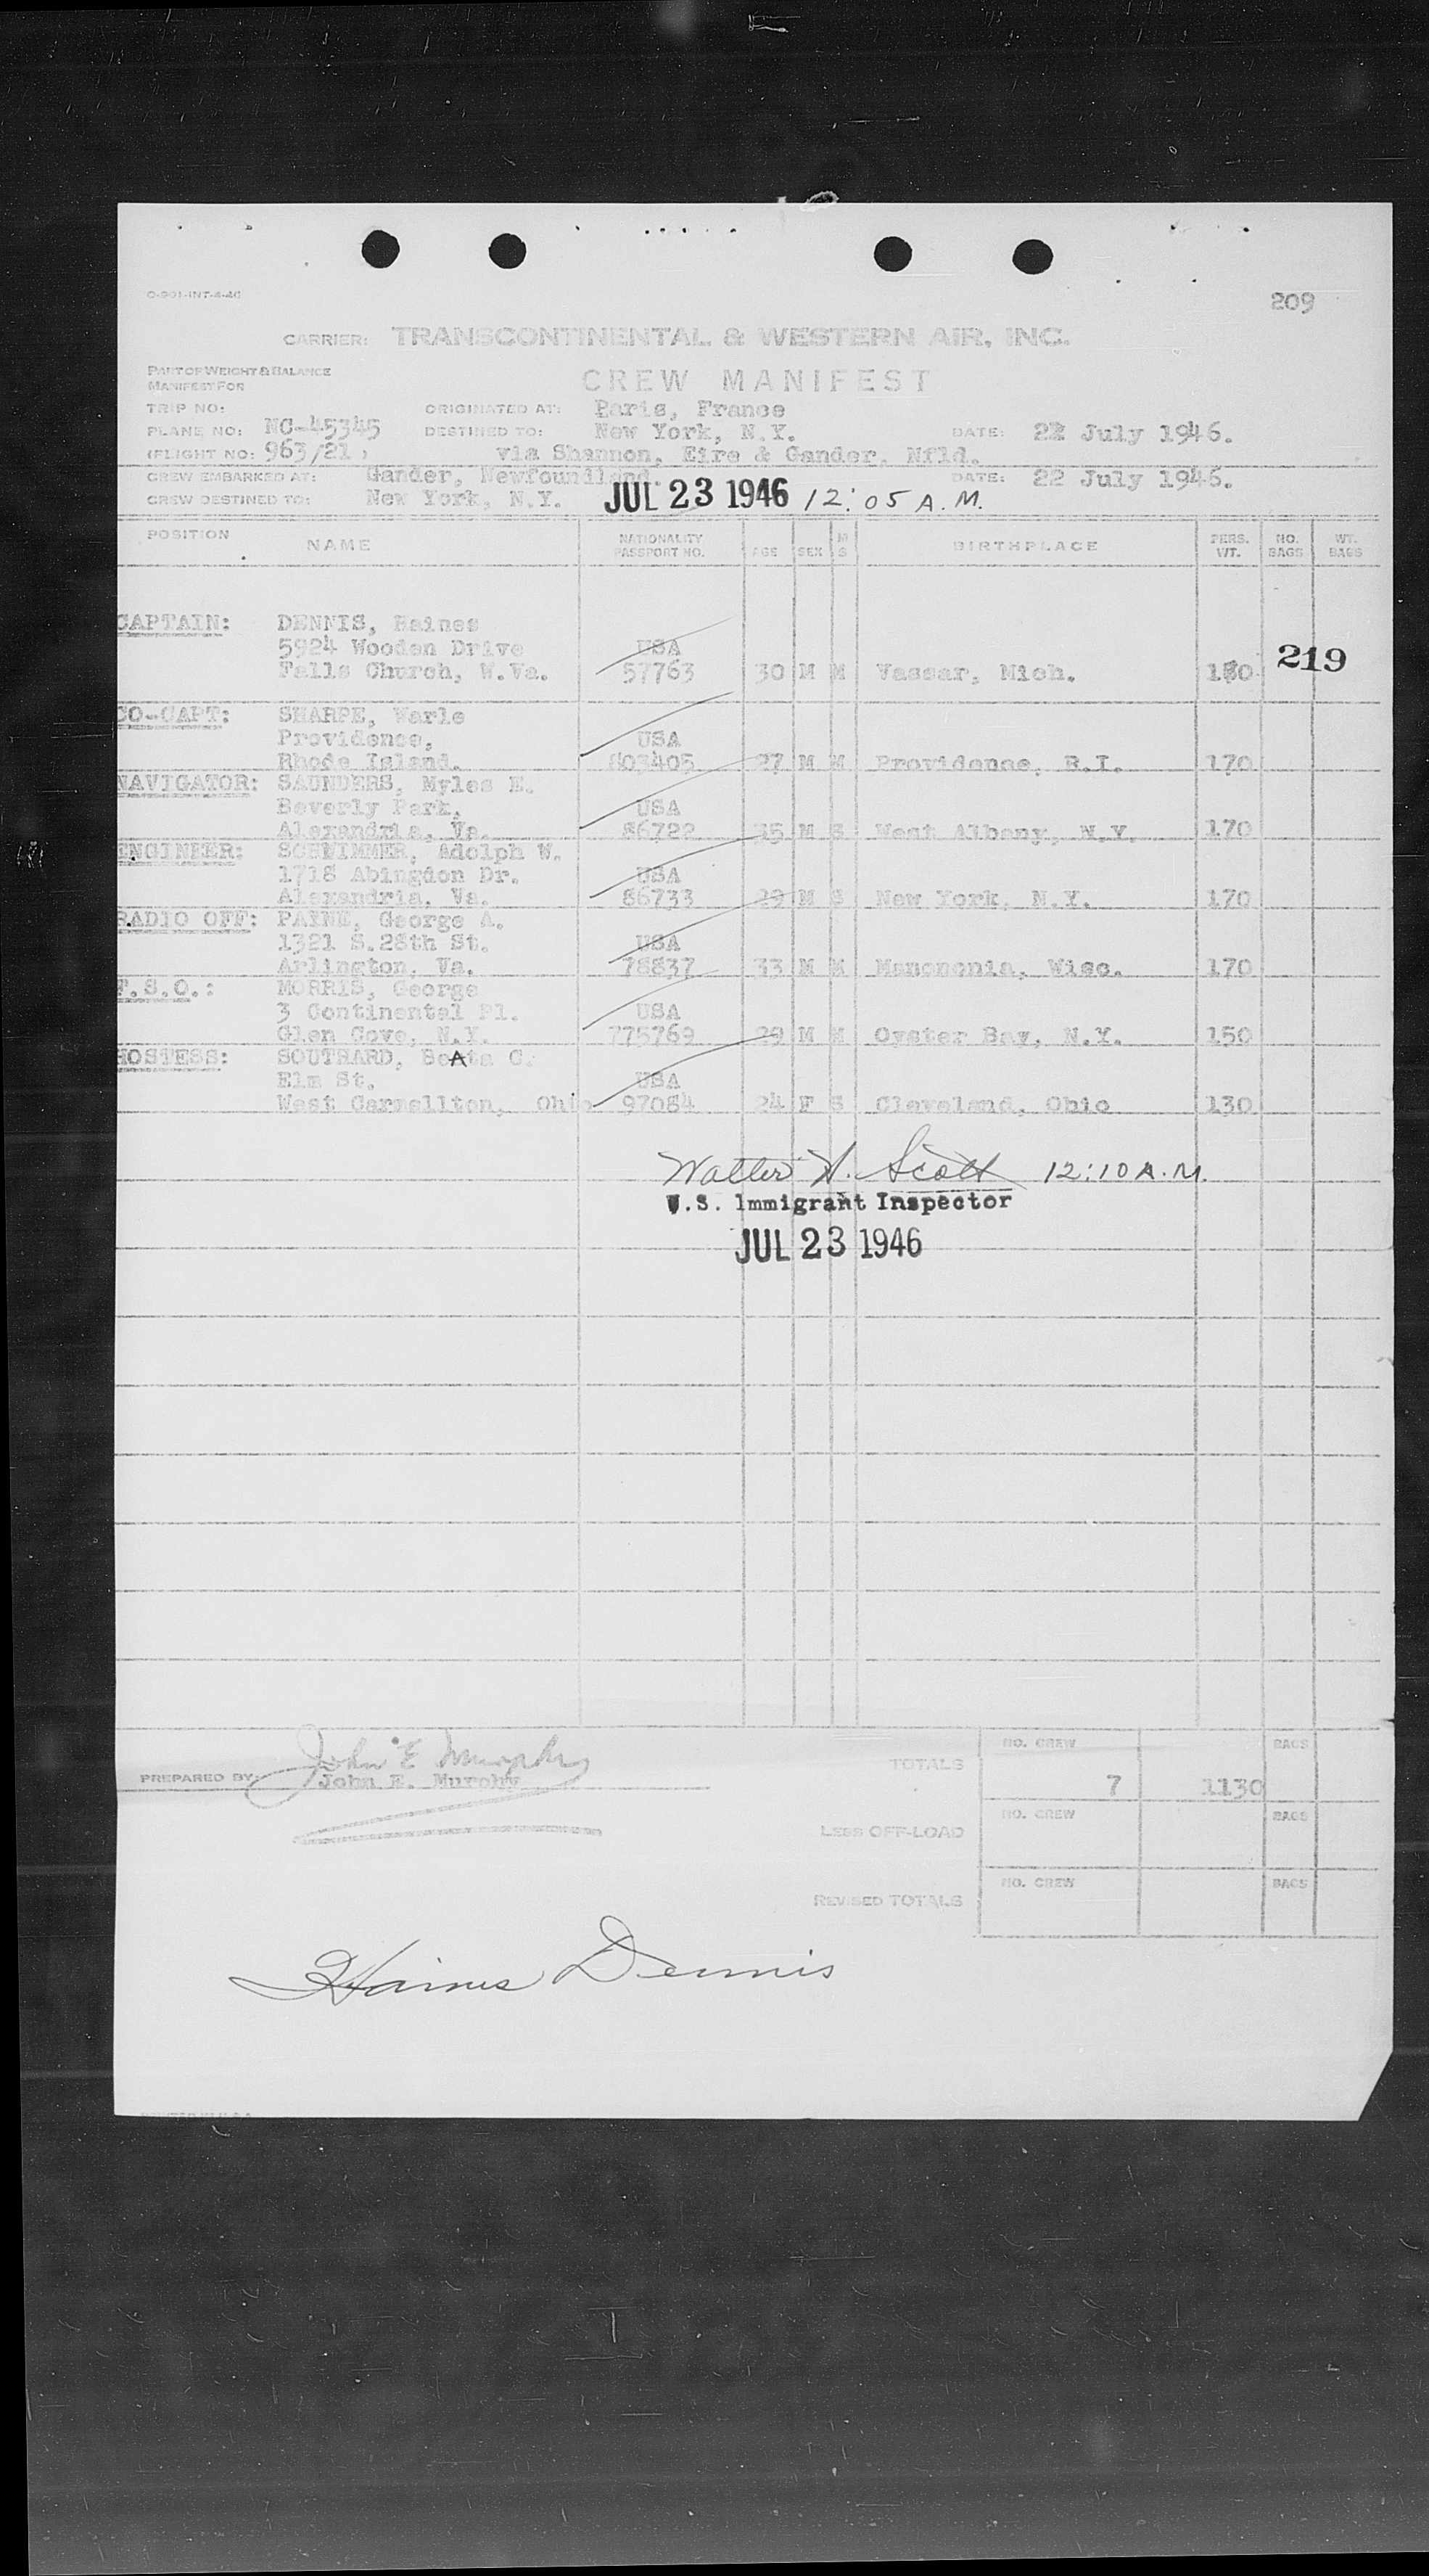 O-901-INT-4-46
209
CARRIER: TRANSCONTINENTAL & WESTERN AIR, INC.
PART OF WEIGHT & BALANCE
MANIFEST FOR
CREW MANIFEST
TRIP NO: ORIGINATED AT: Paris, France
PLANE NO: NC-45345 DESTINED TO: New York, N.Y. DATE: 22 July 1946.
(FLIGHT NO: 963/21 ) via Shannon, Eire & Gander, Nfld.
CREW EMBARKED AT: Gander, Newfoundland. DATE: 22 July 1946.
CREW DESTINED TO: New York, N.Y. JUL 23 1946 12:05 A.M.
POSITION NAME NATIONALITY PASSPORT NO. AGE SEX M S BIRTHPLACE PERS. WT. NO. BAGS WT. BAGS
CAPTAIN: DENNIS, Haines
5924 Wooden Drive USA
Falls Church, W.Va. 57763 30 M M Vassar, Mich. 180 219
CO-CAPT: SHARPE, Earle
Providence, USA
Rhode Island. 803405 27 M M Providence, R.I. 170
NAVIGATOR: SAUNDERS, Myles E.
Beverly Park, USA
Alexandria, Va. 86722 35 M S West Albany, N.Y. 170
ENGINEER: SCHWIMMER, Adolph W.
1718 Abingdon Dr. USA
Alexandria, Va. 86733 29 M S New York, N.Y. 170
RADIO OFF: PAYNE, George A.
1321 S.28th St. USA
Arlington, Va. 78837 33 M M Menononia, Wisc. 170
F.S.O.: MORRIS, George
3 Continental Pl. USA
Glen Cove, N.Y. 775769 29 M M Oyster Bay, N.Y. 150
HOSTESS: SOUTHARD, BeAta C.
Elm St. USA
West Carrellton, Ohio 97084 24 F S Cleveland, Ohio 130
Walter H. Scott 12:10 A.M.
U.S. Immigrant Inspector
JUL 23 1946
John E Murphy
PREPARED BY: John E. Murphy
TOTALS NO. CREW 7 1130 BAGS
LESS OFF-LOAD NO. CREW BAGS
REVISED TOTALS NO. CREW BAGS
Haines Dennis